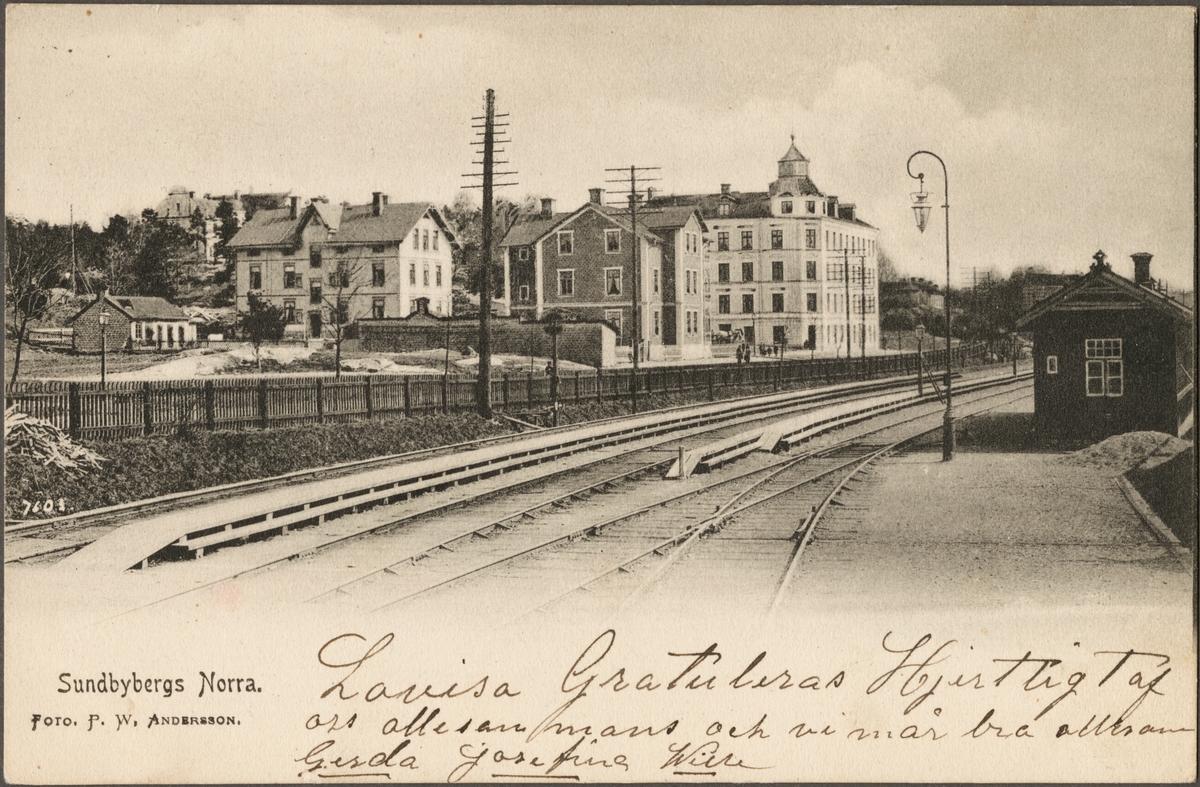 7608.
Sundbybergs Norra.
FOTO. P. W. ANDERSSON.
Lovisa Gratuleras Hjertligt af
oss allesammans och vi mår bra allesam
Gerda Josefina